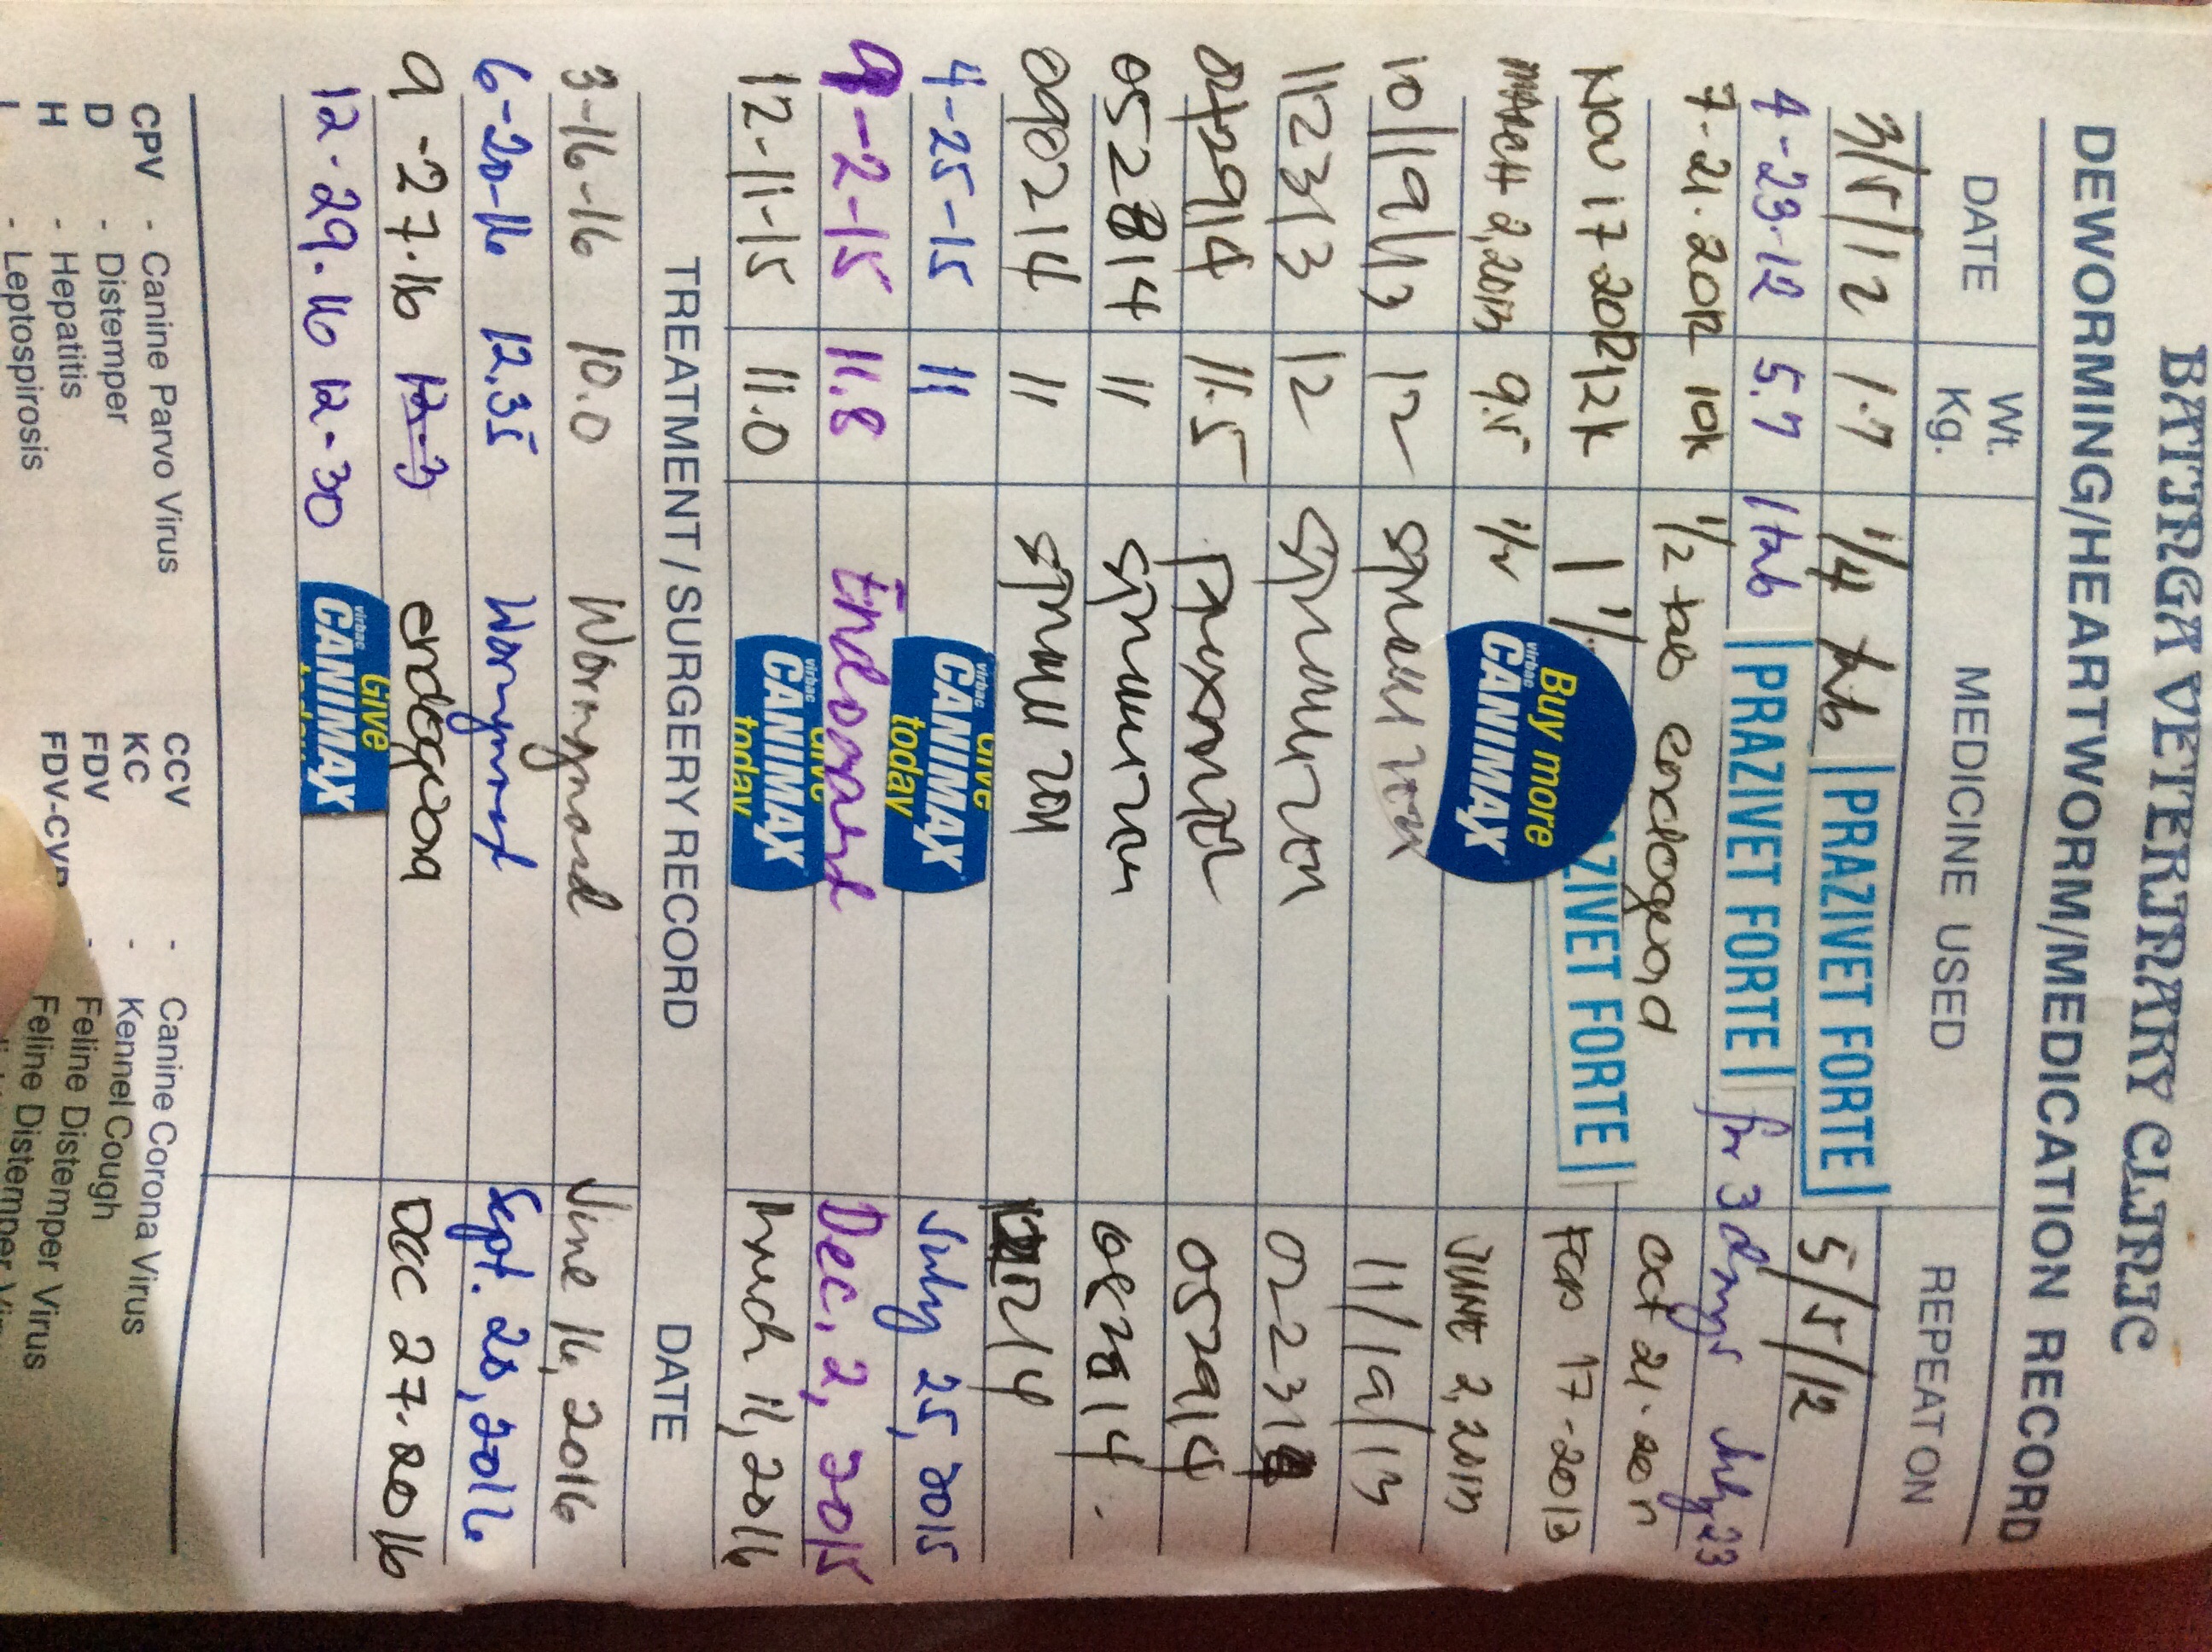 BATINGA VETERINARY CLINIC
DEWORMING/HEARTWORM/MEDICATION RECORD
DATE Wt. Kg. MEDICINE USED REPEAT ON
3/5/12 1.7 1/4 tab PRAZIVET FORTE 5/5/12
4-23-12 5.7 1 tab PRAZIVET FORTE for 3 days July 23
7-21-2012 10k 1/2 tab endogard oct 21-2012
Nov 17-2012 12k 1 ZIVET FORTE Feb 17-2013
MARCH 2, 2013 9.5 1/2 Buy more virbac CANIMAX JUNE 2, 2013
10/19/13 12 11/19/13
112313 12 022314
042914 11.5 052914
052814 11 082814
090214 11 120214
4-25-15 11 Give virbac CANIMAX today July 25, 2015
9-2-15 11.8 Endogard Dec. 2, 2015
12-11-15 11.0 Give virbac CANIMAX today March 11, 2016
TREATMENT / SURGERY RECORD DATE
3-16-16 10.0 Wormgard June 16, 2016
6-20-16 12.35 Wormgard Sept. 20, 2016
9-27-16 12-3 endogard Dec 27-2016
12-29-16 12-30 Give virbac CANIMAX
CPV - Canine Parvo Virus CCV - Canine Corona Virus
D - Distemper KC - Kennel Cough
H - Hepatitis FDV - Feline Distemper Virus
L - Leptospirosis FDV-CVR Feline Distemper Virus